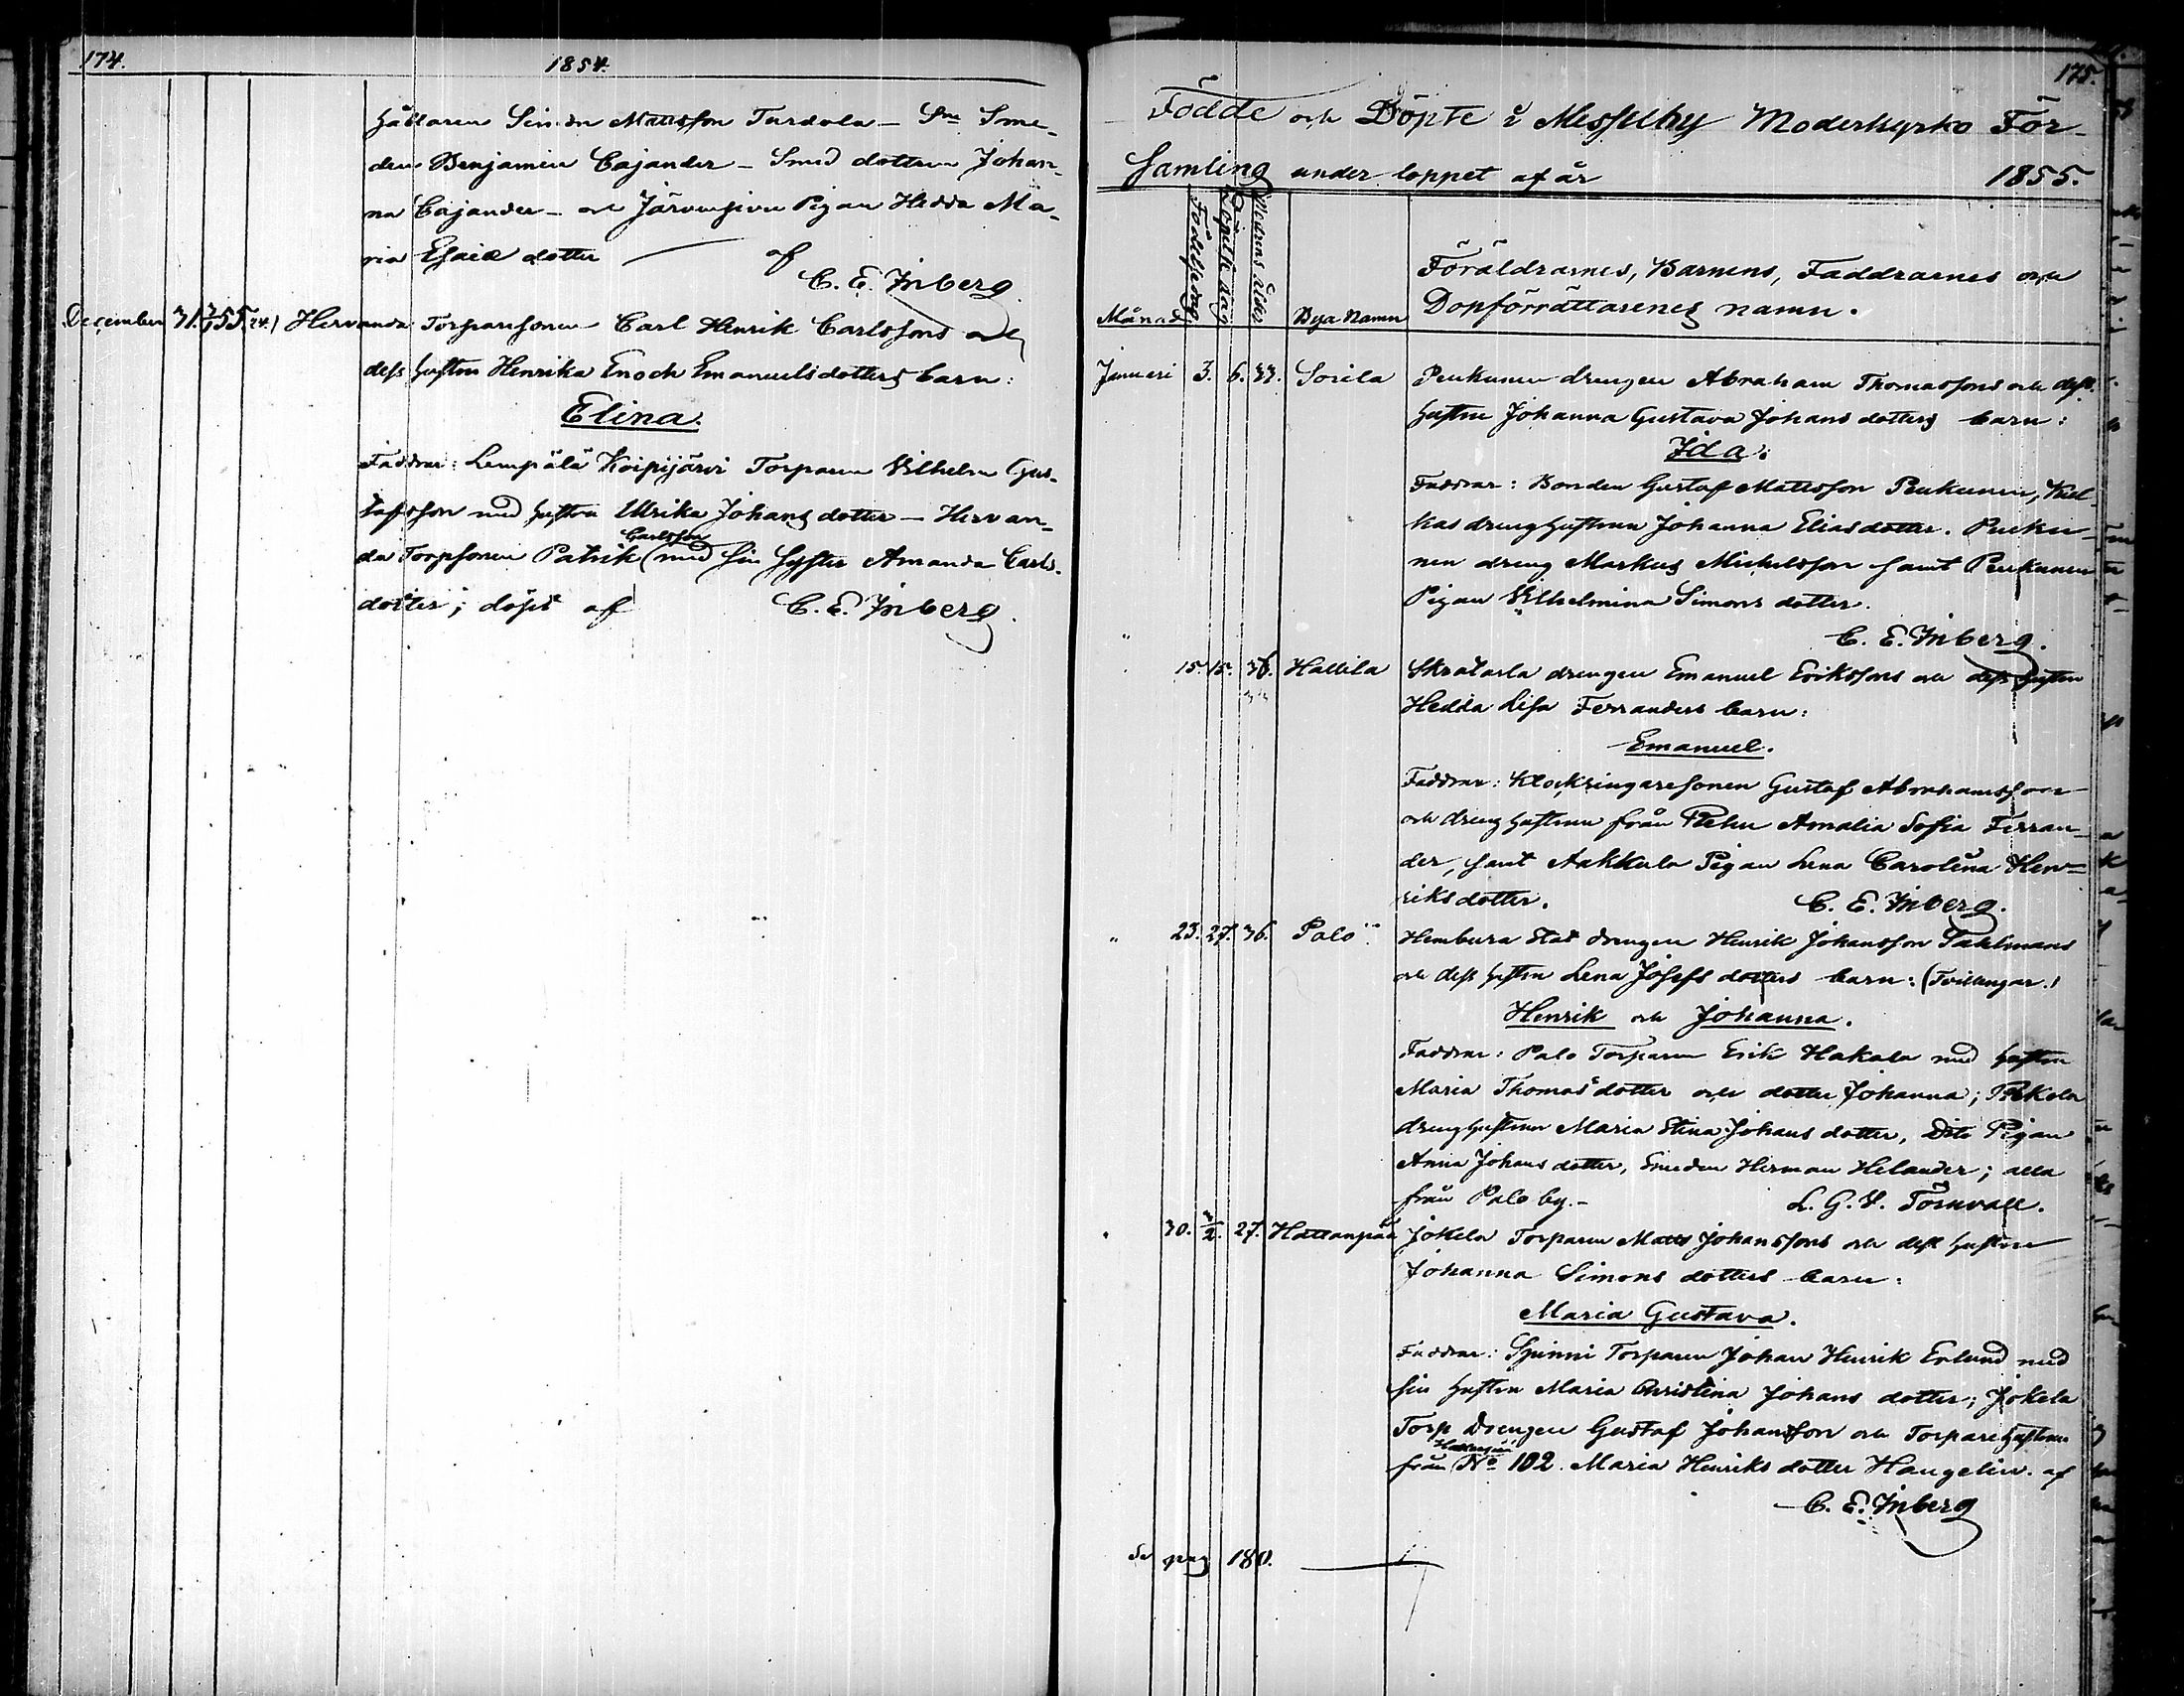 174.
1854.
hållaren Simon Mattsson Turdola – Sme
den Benjamin Cajander – Smed dottren Johan-
na Cajander – och Järvensivu Pigan Hedda Ma-
ria Esaiæ dotter — af
C. E. Inberg
December 31. 3/1 55. 24. Hervanda Torparesonen Carl Henrik Carlssons och
dess hustru Henrika Enoch Emanuelsdotters barn:
Elina.
Faddrar: Lempälä Koipijärvi Torparen Vilhelm Gus-
tafsson med hustru Ulrika Johans dotter – Hervan-
da Torpsonen Patrik Carlsson med sin Syster Amanda Carls-
dotter; döpt af C. E. Inberg.
175.
Födde och Döpte i Messuby Moderkyrko För-
samling under loppet af år 1855.
Månad Födelsedag Döpelse dag Modrens ålder Bya Namn
Föräldrarnes, Barnens, Faddrarnes och
Dopförrättarenes namn.
Januari 3. 6. 33. Sorila Penkunen drengen Abraham Thomassons och dess
hustru Johanna Gustava Johans dotters barn:
Ida.
Faddrar: Bonden Gustaf Mattsson Penkunen,
kas dreng hustrun Johanna Elias dotter. Penku-
nen dreng Markus Michelsson samt Penkunen
Pigan Vilhelmina Simons dotter.
C. E. Inberg.
" 15. 15. 36. Hallila Skratarla drengen Emanuel Erikssons och dess hustru
Hedda Lisa Ferranders barn:
Emanuel.
Faddrar: Klockringaresonen Gustaf Abrahamsson
och dreng hustrun från Amalia Sofia Ferran-
der, samt Aakkula Pigan Lena Carolina Hen-
riksdotter. C. E. Inberg.
" 23. 27. 36. Palo Hembura drengen Henrik Johansson Tahlmans
och dess hustru Lena Josefs dotters barn: (Tvillingar.)
Henrik och Johanna.
Faddrar: Palo Torparen Erik Hakala med hustru
Maria Thomas dotter och dotter Johanna;
dreng hustrun Maria Stina Johans dotter, Dito Pigan
Anna Johans dotter, Smeden Herman Helander; alla
från Palo by. – L. G. V. Törnvall.
" 30. 3/2. 27. Hattanpää Jokela Torparen Matts Johanssons och dess hustru
Johanna Simons dotters barn:
Maria Gustava.
Faddrar: Spinni Torparen Johan Henrik Enlund med
sin hustru Maria Christina Johans dotter; Jokela
Torp Drengen Gustaf Johansson och Torpare hustrun
från Hattanpää No 102. Maria Henriks dotter Haugelin. af
C. E. Inberg
Se pag 180.